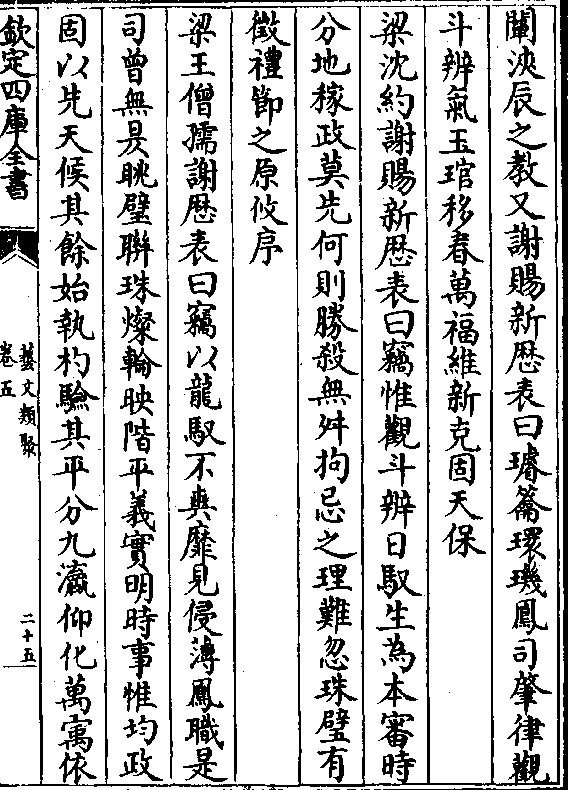 闡浹辰之教又謝賜新厯表曰璿籥環璣鳳司肇律觀
斗辨氣玉琯移春萬福維新克固天保
梁沈約謝賜新厯表曰竊惟觀斗辨日馭生為本審時
分地稼政莫先何則勝殺無舛拘忌之理難忽珠璧有
徴禮節之原攸序
梁王僧孺謝厯表曰竊以龍馭不爽靡見侵薄鳳職是
司曾無昃朓璧聯珠燦輪映階平義實明時事惟均政
固以先天候其餘始執杓驗其平分九瀛仰化萬寓依
欽定四庫全書
藝文類聚
卷五
二十五